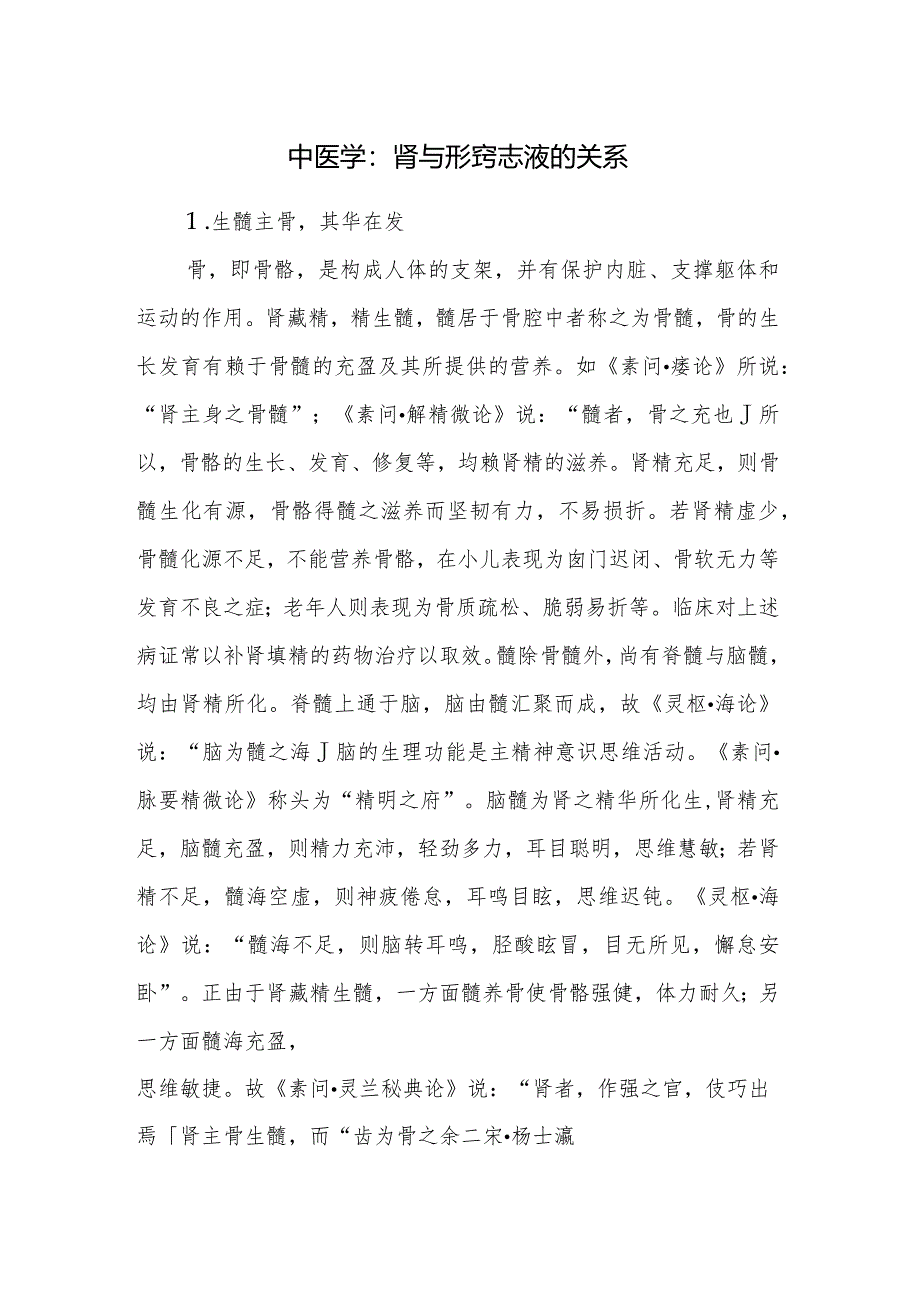 中医学：肾与形窍志液的关系
1.生髓主骨，其华在发
骨，即骨骼，是构成人体的支架，并有保护内脏、支撑躯体和
运动的作用。肾藏精，精生髓，髓居于骨腔中者称之为骨髓，骨的生
长发育有赖于骨髓的充盈及其所提供的营养。如《素问•痿论》所说：
“肾主身之骨髓”；《素问•解精微论》说：“髓者，骨之充也J所
以，骨骼的生长、发育、修复等，均赖肾精的滋养。肾精充足，则骨
髓生化有源，骨骼得髓之滋养而坚韧有力，不易损折。若肾精虚少，
骨髓化源不足，不能营养骨骼，在小儿表现为囱门迟闭、骨软无力等
发育不良之症；老年人则表现为骨质疏松、脆弱易折等。临床对上述
病证常以补肾填精的药物治疗以取效。髓除骨髓外，尚有脊髓与脑髓，
均由肾精所化。脊髓上通于脑，脑由髓汇聚而成，故《灵枢•海论》
说：“脑为髓之海J脑的生理功能是主精神意识思维活动。《素问•
脉要精微论》称头为“精明之府”。脑髓为肾之精华所化生,肾精充
足，脑髓充盈，则精力充沛，轻劲多力，耳目聪明，思维慧敏；若肾
精不足，髓海空虚，则神疲倦怠，耳鸣目眩，思维迟钝。《灵枢•海
论》说：“髓海不足，则脑转耳鸣，胫酸眩冒，目无所见，懈怠安
卧”。正由于肾藏精生髓，一方面髓养骨使骨骼强健，体力耐久；另
一方面髓海充盈，
思维敏捷。故《素问•灵兰秘典论》说：“肾者，作强之官，伎巧出
焉「肾主骨生髓，而“齿为骨之余二宋•杨士瀛